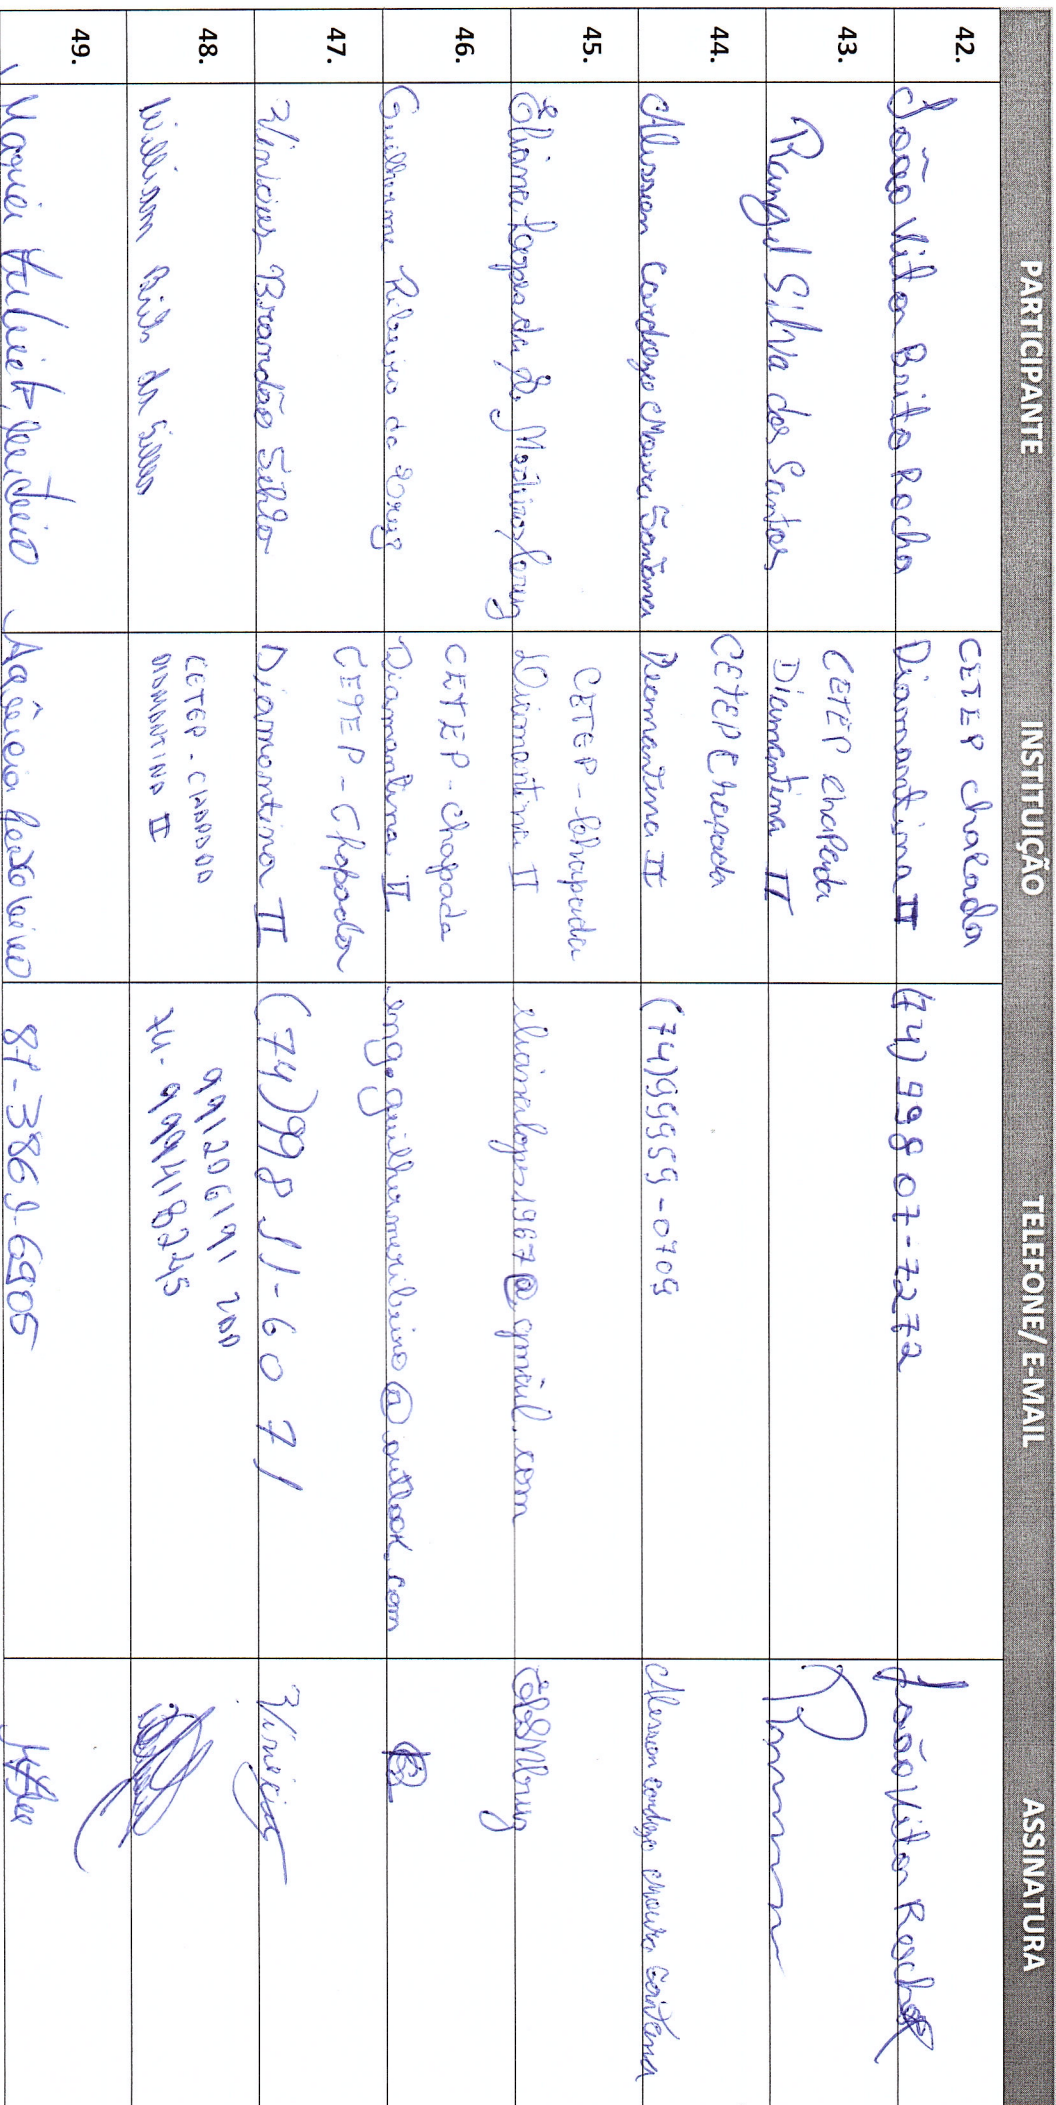 PARTICIPANTE INSTITUIÇÃO TELEFONE/ E-MAIL ASSINATURA
42. João Vitor Brito Rocha CETEP chapada Diamantina II (74) 99807-7272 João Vitor Rocha
43. Rangel Silva dos Santos CETEP chapada Diamantina II
44. Alesson Cardozo Moura Santana CETEP Chapada Diamantina II (74)99959-0709 Alesson cardozo Moura Santana
45. Eliana Lopes de S. Medinos Cruz CETEP-Chapada Diamantina II elianalopes1967@gmail.com
46. Guilherme Ribeiro da Cruz CETEP-Chapada Diamantina II eng.guilhermeribeiro@outlook.com
47. Vinicius Brandão Silva CETEP-Chapada Diamantina II (74)99811-6071 Vinicius
48. William Brito da Silva CETEP-CHAPADA DIAMANTINA II 991206191 74-999418245
49. Agência 87-3869-6905